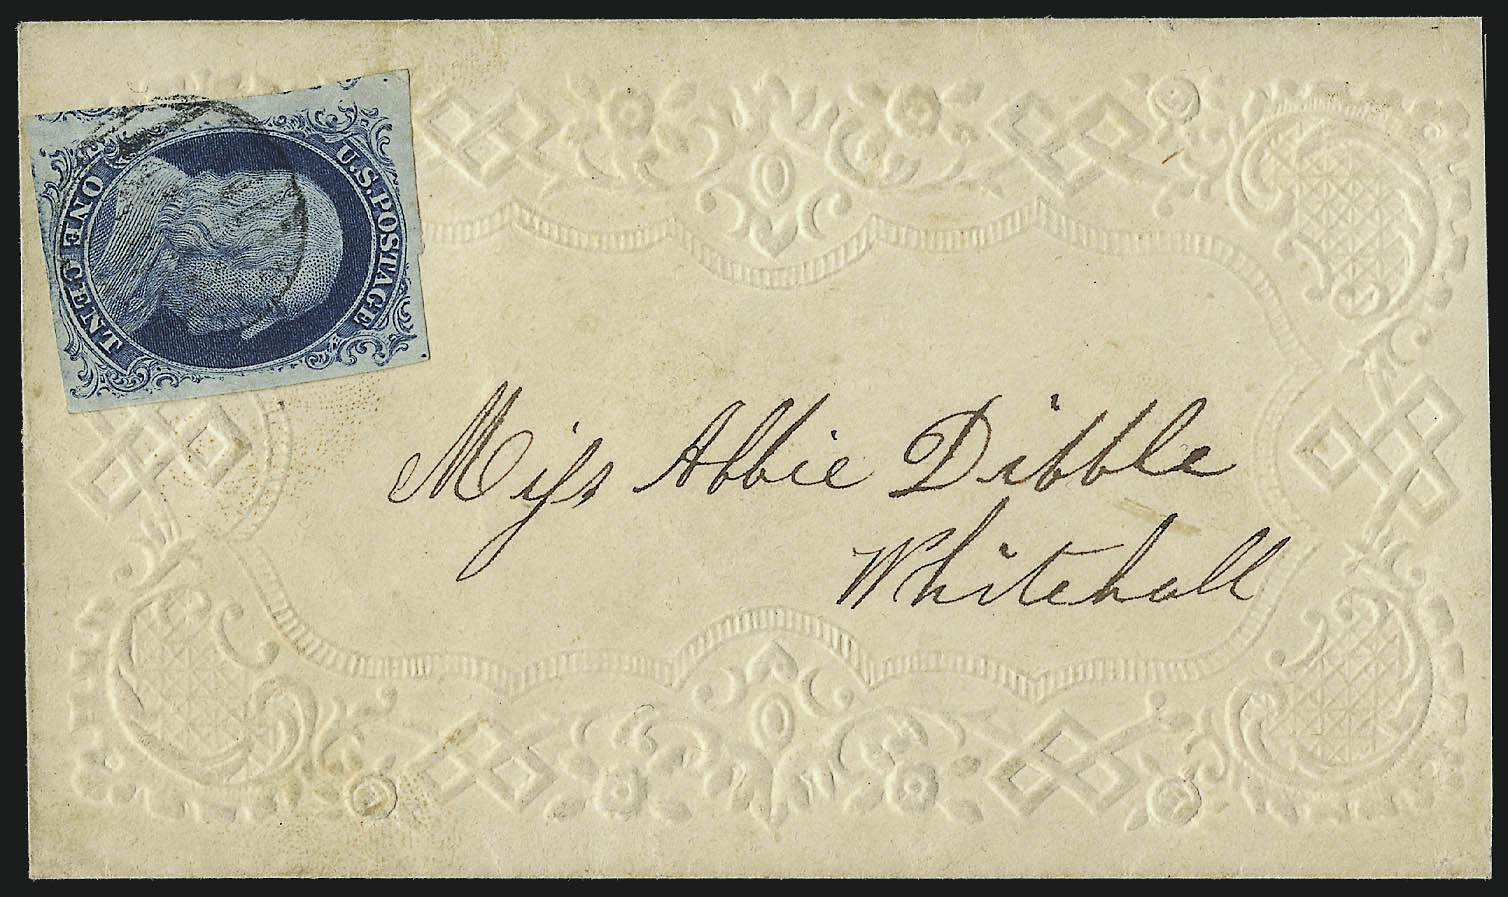 U.S. POSTAGE
ONE CENT
Miſs Abbie Dibble
Whitehall